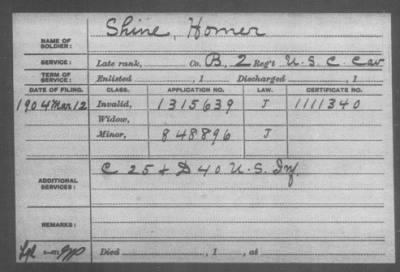 NAME OF SOLDIER: Shine, Homer
SERVICE: Late rank, Co. B, 2 Reg't U.S.C. Cav
TERM OF SERVICE: Enlisted , 1 Discharged , 1
DATE OF FILING. CLASS. APPLICATION NO. LAW. CERTIFICATE NO.
1904 Mar 12 Invalid, 1315639 J 1111340
Widow,
Minor, 848896 J
ADDITIONAL SERVICES: C 25 & D 40 U.S. Inf.
REMARKS:
Died , 1 , at